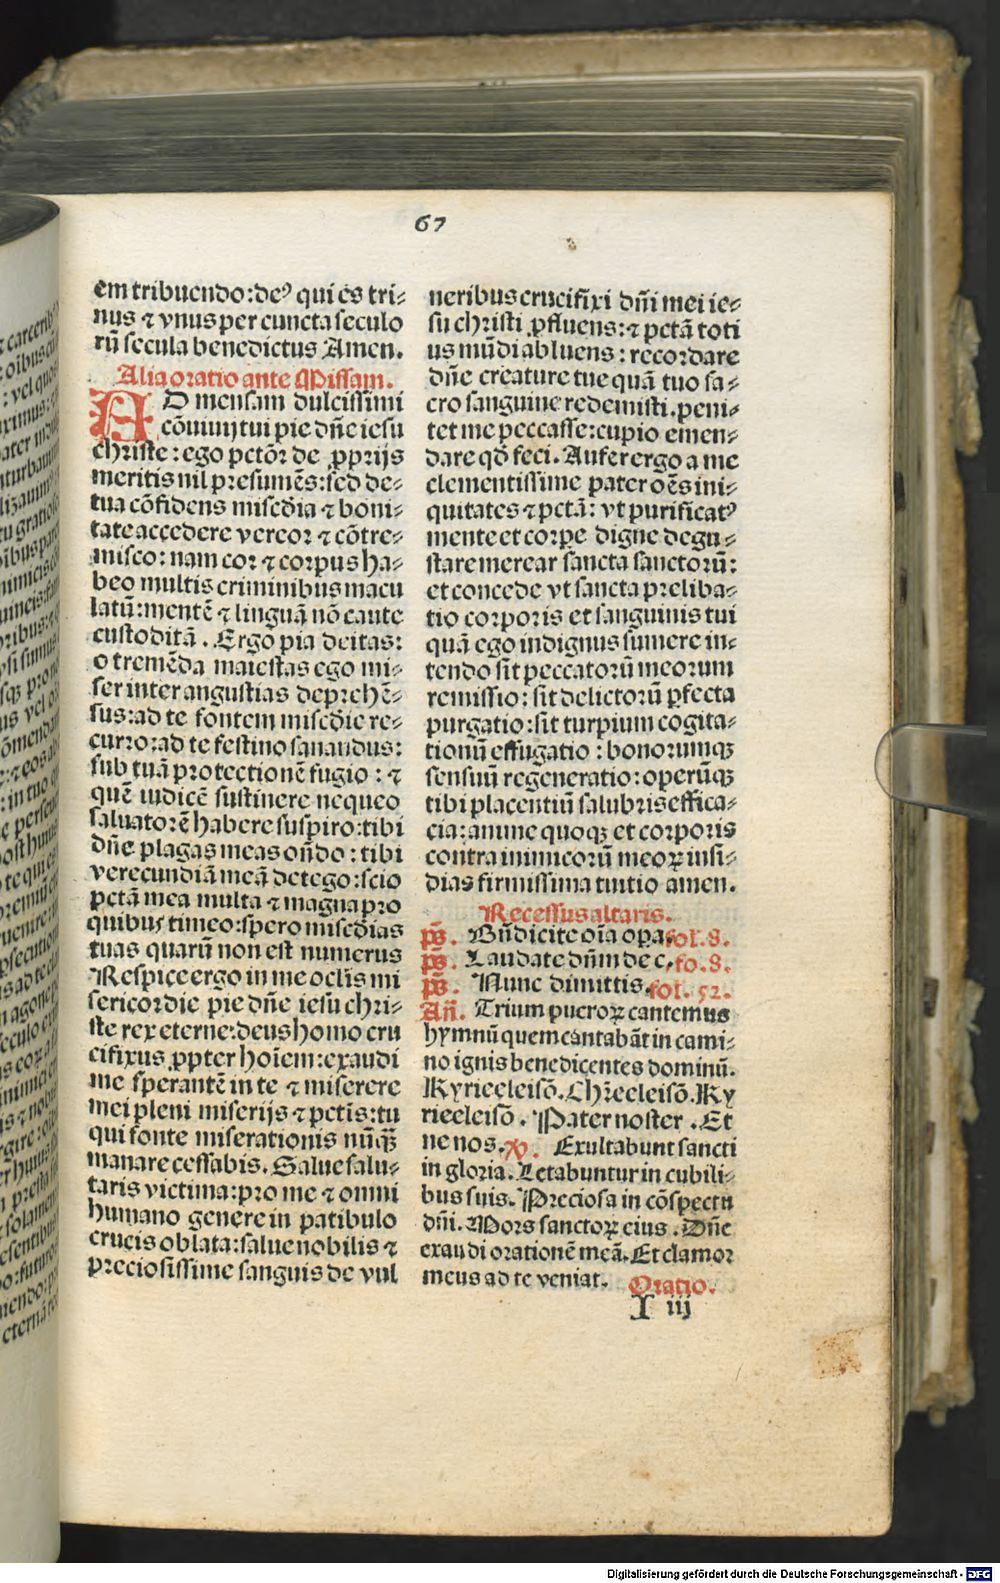 67
em tribuendo:de⁹ qui es tri-
nus ⁊ vnus per cuncta seculo
rū secula benedictus Amen.
Alia oratio ante Missam.
AD mensam dulcissimi
cōuiuij tui pie dn̄e iesu
christe: ego pctōr de ꝓprijs
meritis nil presumēs: sed de-
tua cōfidens misc̄dia ⁊ boni-
tate accedere vereor ⁊ cōtre-
misco: nam cor ⁊ corpus ha-
beo multis criminibus macu
latū: mentē ⁊ linguā nō caute
custoditā. Ergo pia deitas:
o tremēda maiestas ego mi-
ser inter angustias deprehē-
sus: ad te fontem misc̄die re-
curro: ad te festino sanandus:
sub tuā protectionē fugio: ⁊
quē iudicē sustinere nequeo
saluatorē habere suspiro: tibi
dn̄e plagas meas on̄do: tibi
verecundiā meā detego: scio
pctā mea multa ⁊ magna pro
quibus timeo: spero misc̄dias
tuas quarū non est numerus
Respice ergo in me oclis mi
sericordie pie dn̄e iesu chri-
ste rex eterne: deus homo cru
cifixus ꝓpter hoīem: exaudi
me sperantē in te ⁊ miserere
mei pleni miserijs ⁊ pctīs: tu
qui fonte miserationis nūqꝫ
manare cessabis. Salue salu-
taris victima: pro me ⁊ omni
humano genere in patibulo
crucis oblata: salue nobilis ⁊
preciosissime sanguis de vul
neribus crucifixi dn̄i mei ie-
su christi ꝓfluens: ⁊ pctā toti
us mūdi abluens: recordare
dn̄e creature tue quā tuo sa-
cro sanguine redemisti. peni-
tet me peccasse: cupio emen-
dare qd̄ feci. Aufer ergo a me
clementissime pater oēs ini-
quitates ⁊ pctā: vt purificat⁹
mente et corpe digne degu-
stare merear sancta sanctorū:
et concede vt sancta preliba-
tio corporis et sanguinis tui
quā ego indignus sumere in-
tendo sit peccatorū meorum
remissio: sit delictorū ꝑfecta
purgatio: sit turpium cogita-
tionū effugatio: bonorumqꝫ
sensuū regeneratio: operūqꝫ
tibi placentiū salubris effica-
cia: anime quoqꝫ et corporis
contra inimicorū meoꝝ insi-
dias firmissima tuitio amen.
Recessus altaris.
p̄s. Bn̄dicite oīa opa. fol. 8.
p̄s. Laudate dn̄m de c. fo. 8.
p̄s. Nunc dimittis. fol. 52.
Añ. Trium pueroꝝ cantemus
hymnū quem cantabāt in cami-
no ignis benedicentes dominū.
Kyrieeleisō. Chr̄eeleisō. Ky
rieeleisō. Pater noster. Et
ne nos. ℣. Exultabunt sancti
in gloria. Letabuntur in cubili-
bus suis. Preciosa in cōspectu
dn̄i. Mors sanctoꝝ eius. Dn̄e
exaudi orationē meā. Et clamor
meus ad te veniat. Oratio.
I iij
Digitalisierung gefördert durch die Deutsche Forschungsgemeinschaft - DFG